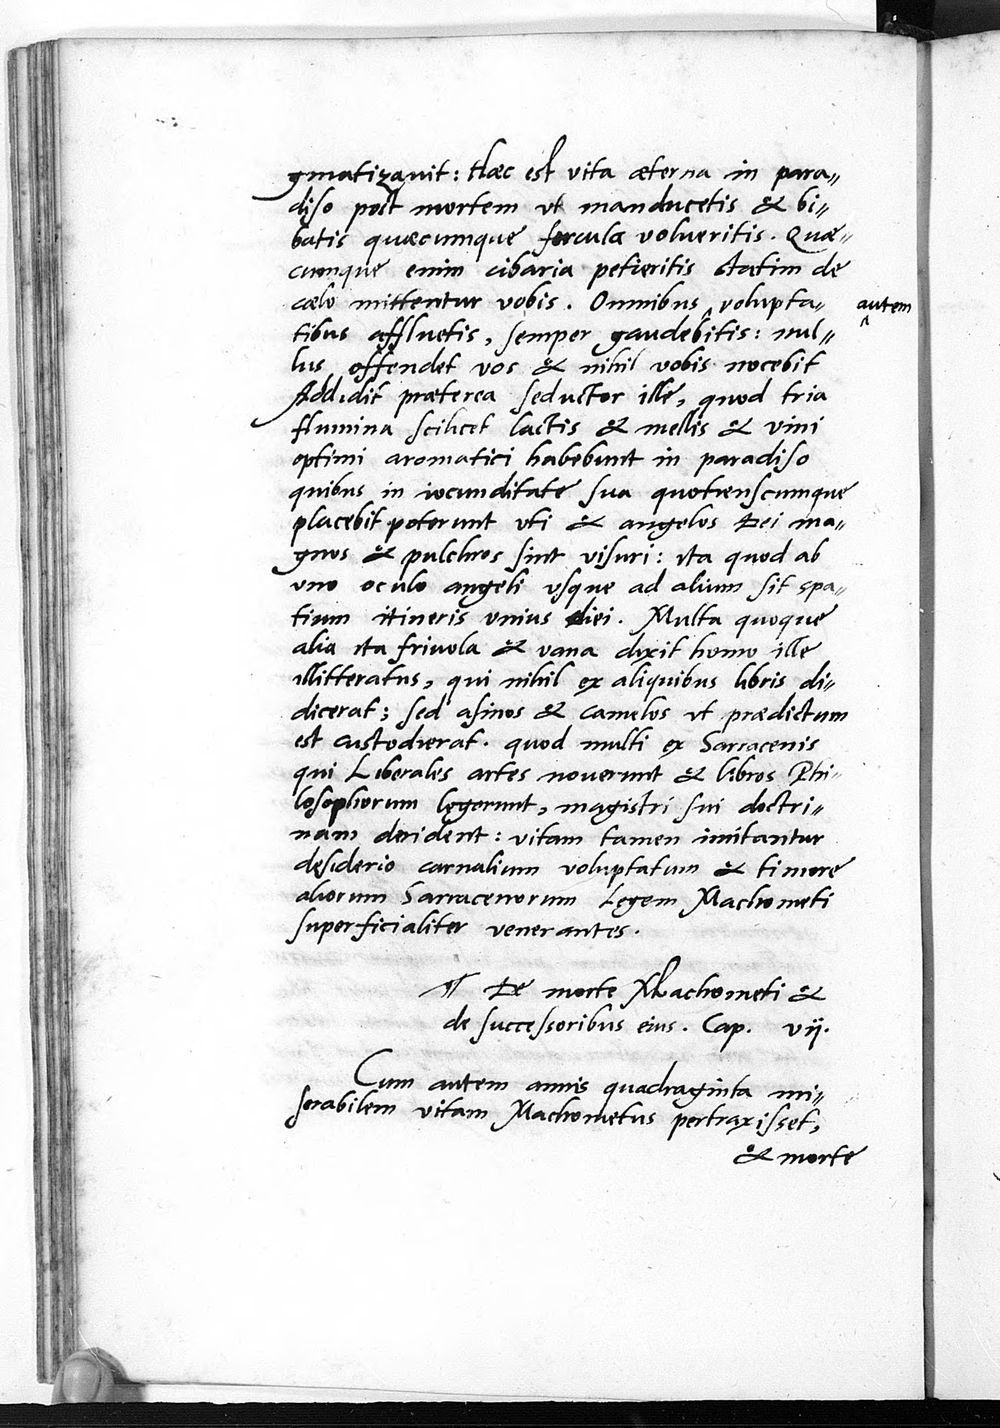 gmatizauit: Hæc est vita æterna in para„
diso post mortem vt manducetis & bi„
batis quæcumque fercula volueritis. Quæ„
cumque enim cibaria petieritis statim de
cælo mittentur vobis. Omnibus ‸ volupta„ ‸ autem
tibus affluetis, semper gaudebitis: nul„
lus offendet vos & nihil vobis nocebit
Addidit præterea seductor ille, quod tria
flumina scilicet lactis & mellis & vini
optimi aromatici habebunt in paradiso
quibus in iocunditate sua quotienscumque
placebit poterunt vti & angelos Dei ma„
gnos & pulchros sint visuri: ita quod ab
vno oculo angeli vsque ad alium sit spa„
tium itineris vnius diei. Multa quoque
alia ita friuola & vana dixit homo ille
illitteratus, qui nihil ex aliquibus libris di„
dicerat; sed asinos & camelos vt prædictum
est custodierat. quod multi ex Sarracenis
qui Liberales artes nouerunt & libros Phi„
losophorum legerunt, magistri sui doctri„
nam derident: vitam tamen imitantur
desiderio carnalium voluptatum & timore
aliorum Sarracenorum Legem Machometi
superficialiter venerantes.
¶ De morte Machometi &
de successoribus eius. Cap. vij.
Cum autem annis quadraginta mi„
serabilem vitam Machometus pertraxisset,
& morte